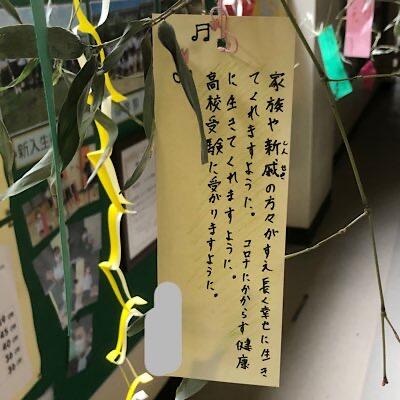 家族や新戚の方々がすえ長く幸せに生き
しんせき
てくれますように。コロナにかからず健康
に生きてくれますように。
高校受験に受かりますように。
新入生